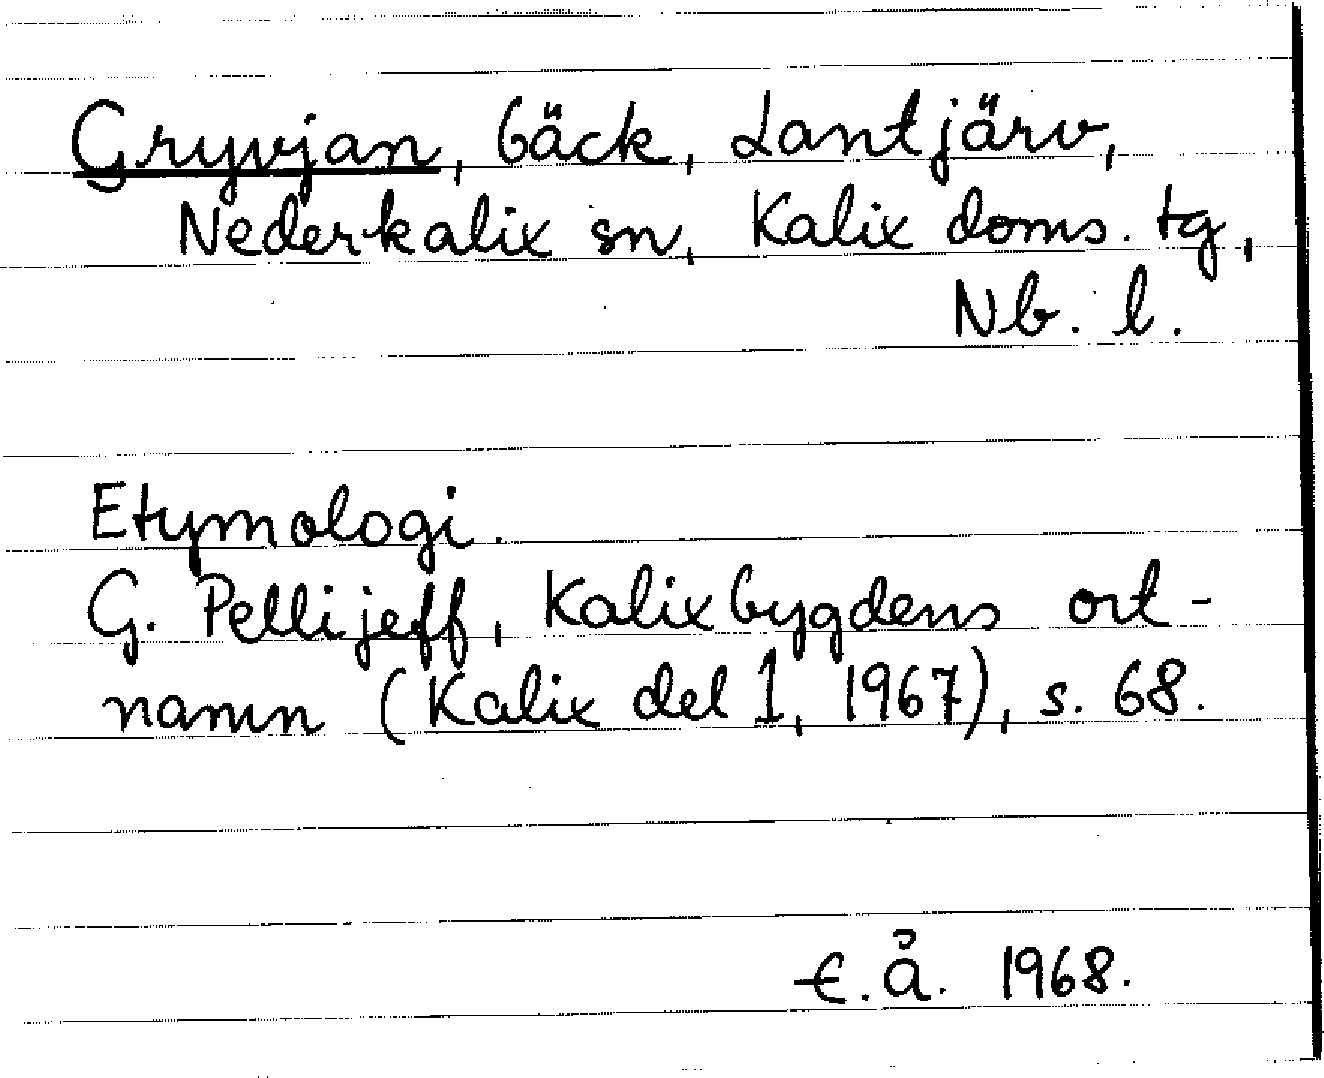 Gryvjan, bäck, Lantjärv,
Nederkalix sn, Kalix doms. tg,
Nb. l.
Etymologi.
G. Pellijeff, Kalixbygdens ort-
namn (Kalix del 1, 1967), s. 68.
E. Å. 1968.